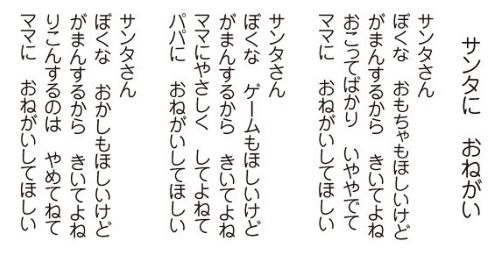 サンタに　おねがい
サンタさん
ぼくな　おもちゃもほしいけど
がまんするから　きいてよね
おこってばかり　いややでて
ママに　おねがいしてほしい
サンタさん
ぼくな　ゲームもほしいけど
がまんするから　きいてよね
ママにやさしく　してよねて
パパに　おねがいしてほしい
サンタさん
ぼくな　おかしもほしいけど
がまんするから　きいてよね
りこんするのは　やめてねて
ママに　おねがいしてほしい